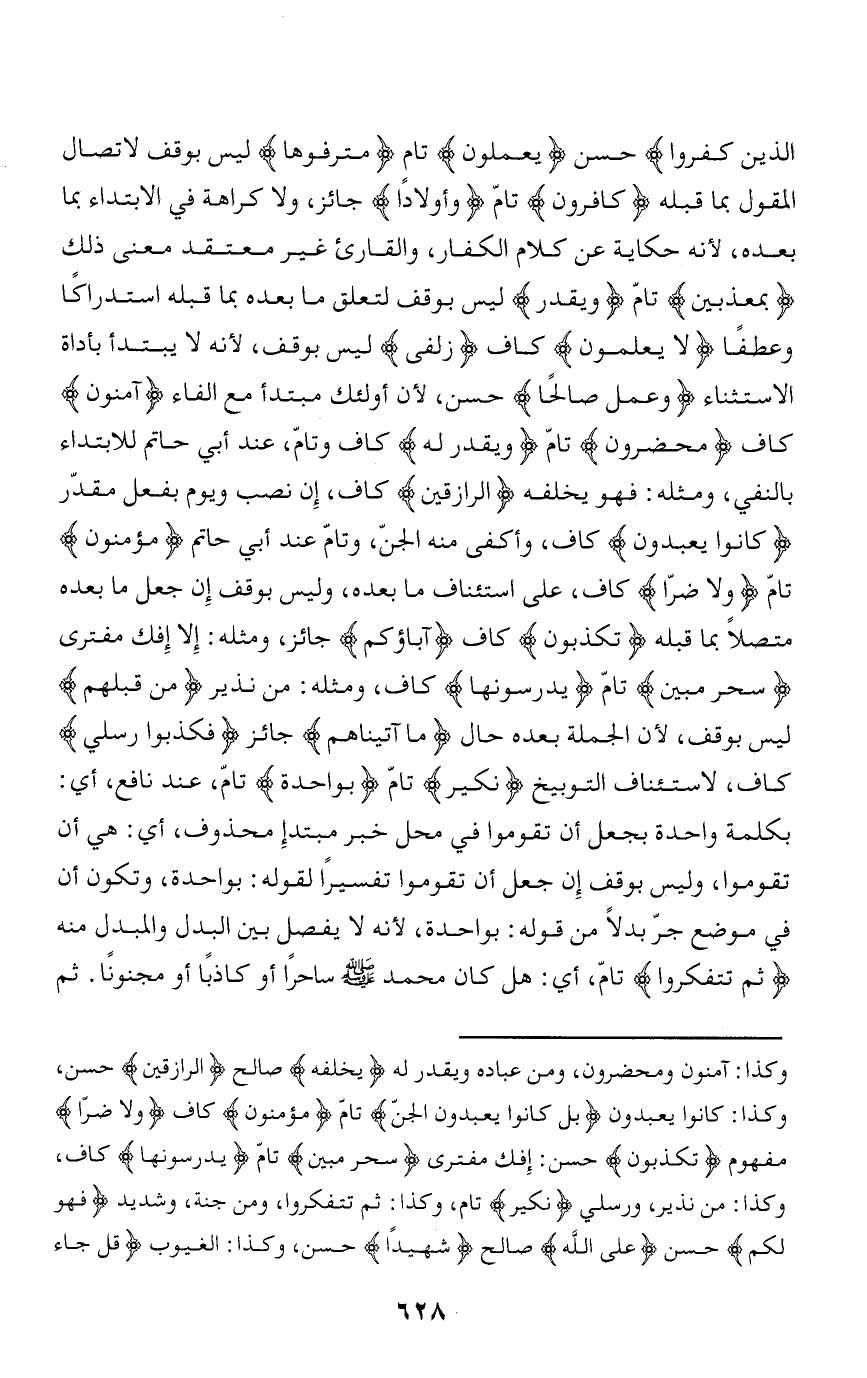 الذين كفروا﴾ حسن ﴿يعملون﴾ تام ﴿مترفوها﴾ ليس بوقف لاتصال
المقول بما قبله ﴿كافرون﴾ تامّ ﴿وأولادًا﴾ جائز، ولا كراهة في الابتداء بما
بعده، لأنه حكاية عن كلام الكفار، والقارئ غير معتقد معنى ذلك
﴿بمعذبين﴾ تامّ ﴿ويقدر﴾ ليس بوقف لتعلق ما بعده بما قبله استدراكًا
وعطفًا ﴿لا يعلمون﴾ كاف ﴿زلفى﴾ ليس بوقف، لأنه لا يبتدأ بأداة
الاستثناء ﴿وعمل صالحًا﴾ حسن، لأن أولئك مبتدأ مع الفاء ﴿آمنون﴾
كاف ﴿محضرون﴾ تامّ ﴿ويقدر له﴾ كاف وتامّ، عند أبي حاتم للابتداء
بالنفي، ومثله: فهو يخلفه ﴿الرازقين﴾ كاف، إن نصب ويوم بفعل مقدّر
﴿كانوا يعبدون﴾ كاف، وأكفى منه الجنّ، وتامّ عند أبي حاتم ﴿مؤمنون﴾
تامّ ﴿ولا ضرًّا﴾ كاف، على استئناف ما بعده، وليس بوقف إن جعل ما بعده
متصلاً بما قبله ﴿تكذبون﴾ كاف ﴿آباؤكم﴾ جائز، ومثله: إلا إفك مفترى
﴿سحر مبين﴾ تامّ ﴿يدرسونها﴾ كاف، ومثله: من نذير ﴿من قبلهم﴾
ليس بوقف، لأن الجملة بعده حال ﴿ما آتيناهم﴾ جائز ﴿فكذبوا رسلي﴾
كاف، لاستئناف التوبيخ ﴿نكير﴾ تامّ ﴿بواحدة﴾ تامّ، عند نافع، أي:
بكلمة واحدة بجعل أن تقوموا في محل خبر مبتدإ محذوف، أي: هي أن
تقوموا، وليس بوقف إن جعل أن تقوموا تفسيرًا لقوله: بواحدة، وتكون أن
في موضع جرّ بدلاً من قوله: بواحدة، لأنه لا يفصل بين البدل والمبدل منه
﴿ثم تتفكروا﴾ تامّ، أي: هل كان محمد ﷺ ساحرًا أو كاذبًا أو مجنونًا. ثم
وكذا: آمنون ومحضرون، ومن عباده ويقدر له ﴿يخلفه﴾ صالح ﴿الرازقين﴾ حسن،
وكذا: كانوا يعبدون ﴿بل كانوا يعبدون الجنّ﴾ تامّ ﴿مؤمنون﴾ كاف ﴿ولا ضرًّا﴾
مفهوم ﴿تكذبون﴾ حسن: إفك مفترى ﴿سحر مبين﴾ تامّ ﴿يدرسونها﴾ كاف،
وكذا: من نذير، ورسلي ﴿نكير﴾ تام، وكذا: ثم تتفكروا، ومن جنة، وشديد ﴿فهو
لكم﴾ حسن ﴿على اللَّه﴾ صالح ﴿شهيدًا﴾ حسن، وكذا: الغيوب ﴿قل جاء
٦٢٨